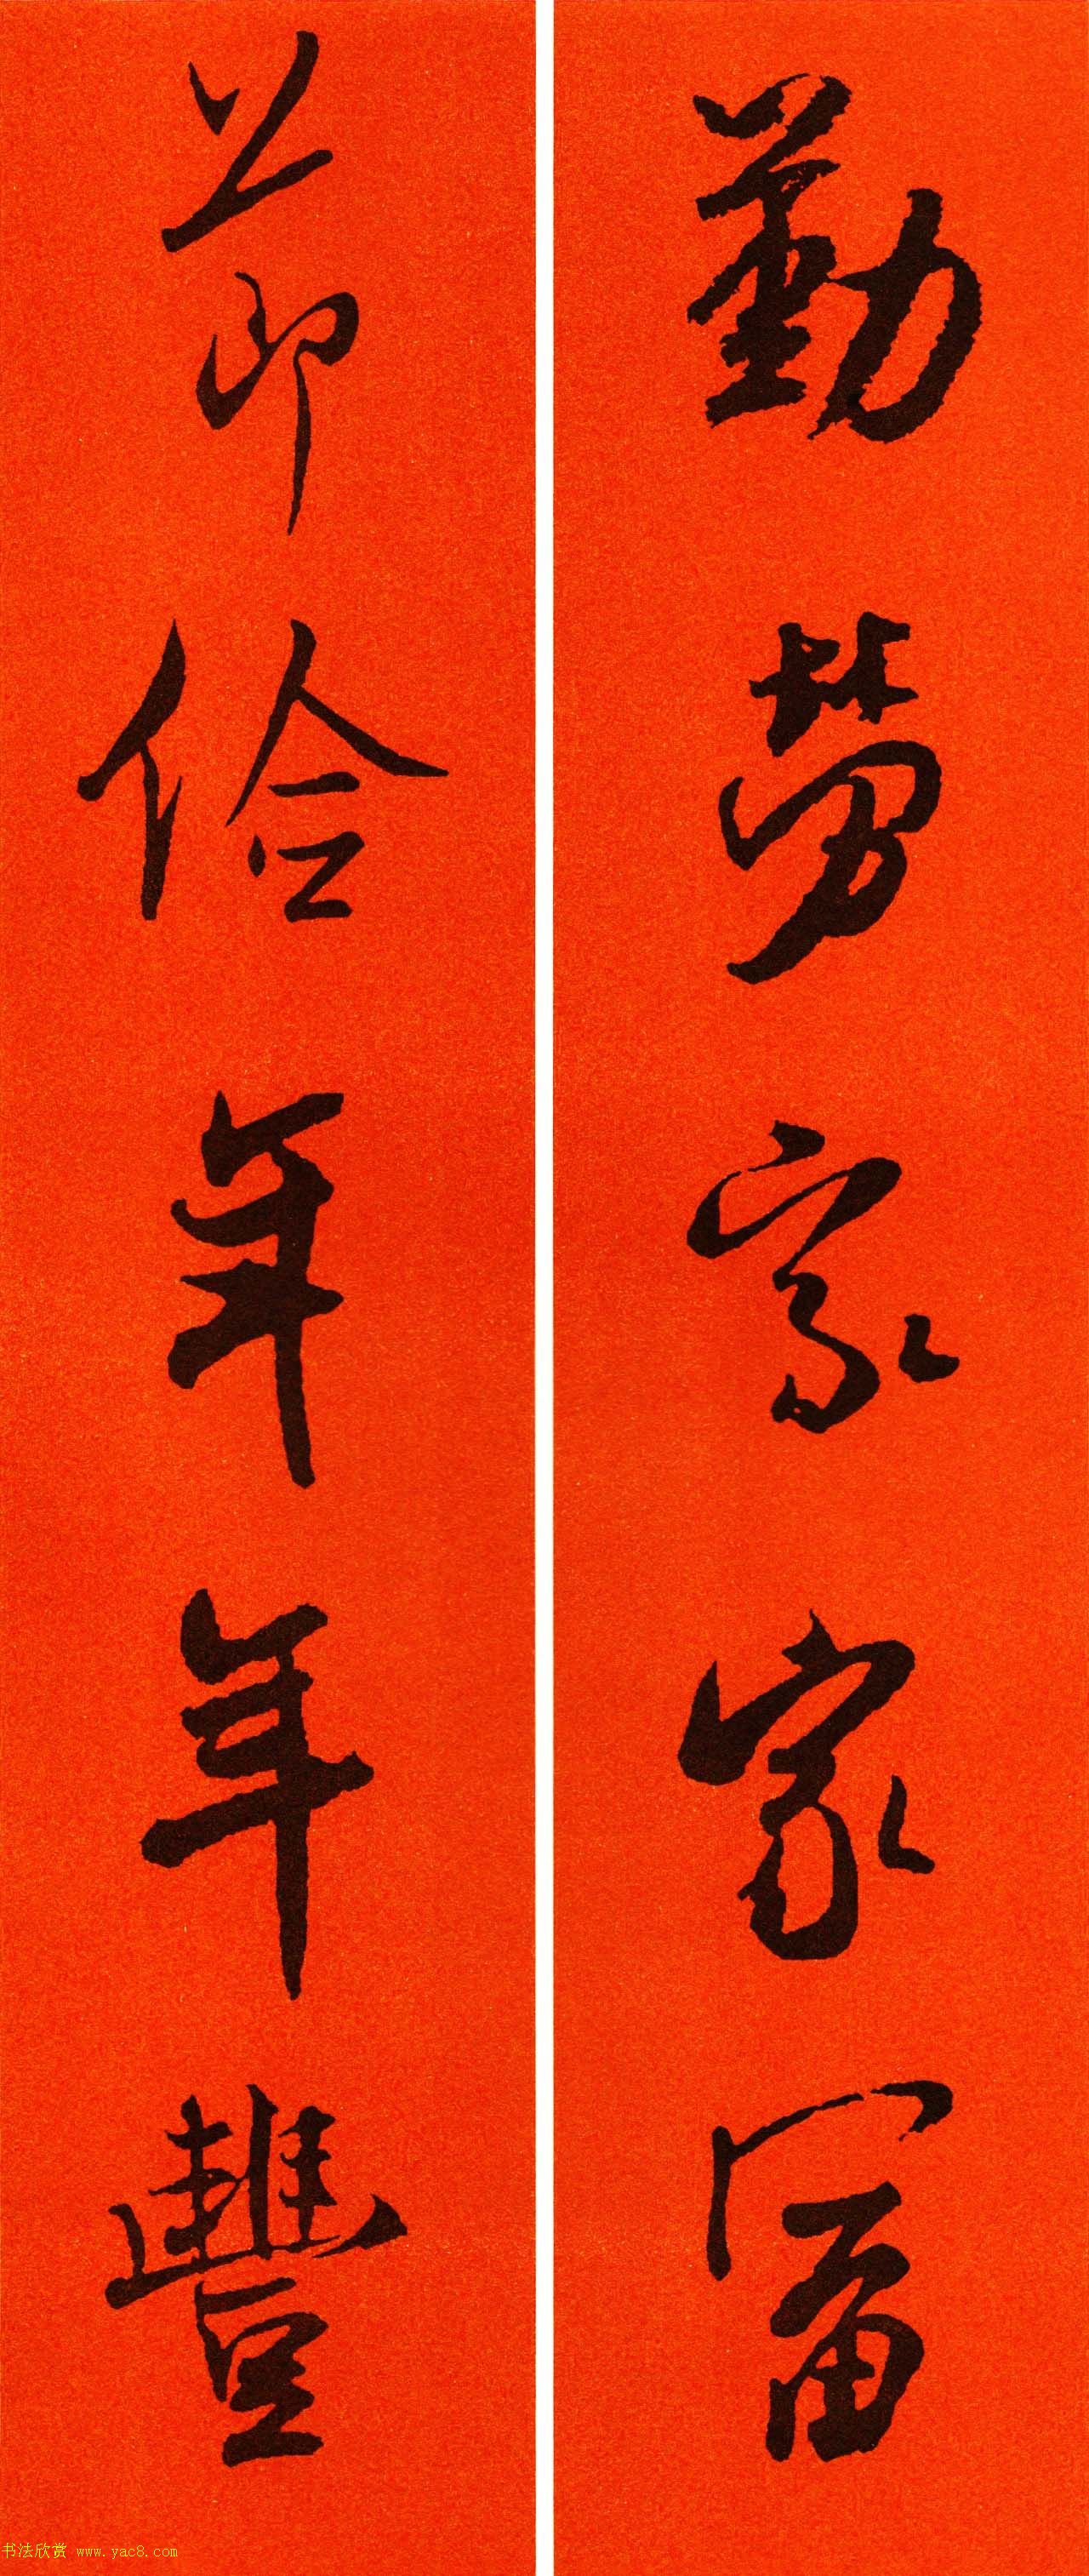 勤劳家家富
节俭年年豐
书法欣赏 www.yac8.com